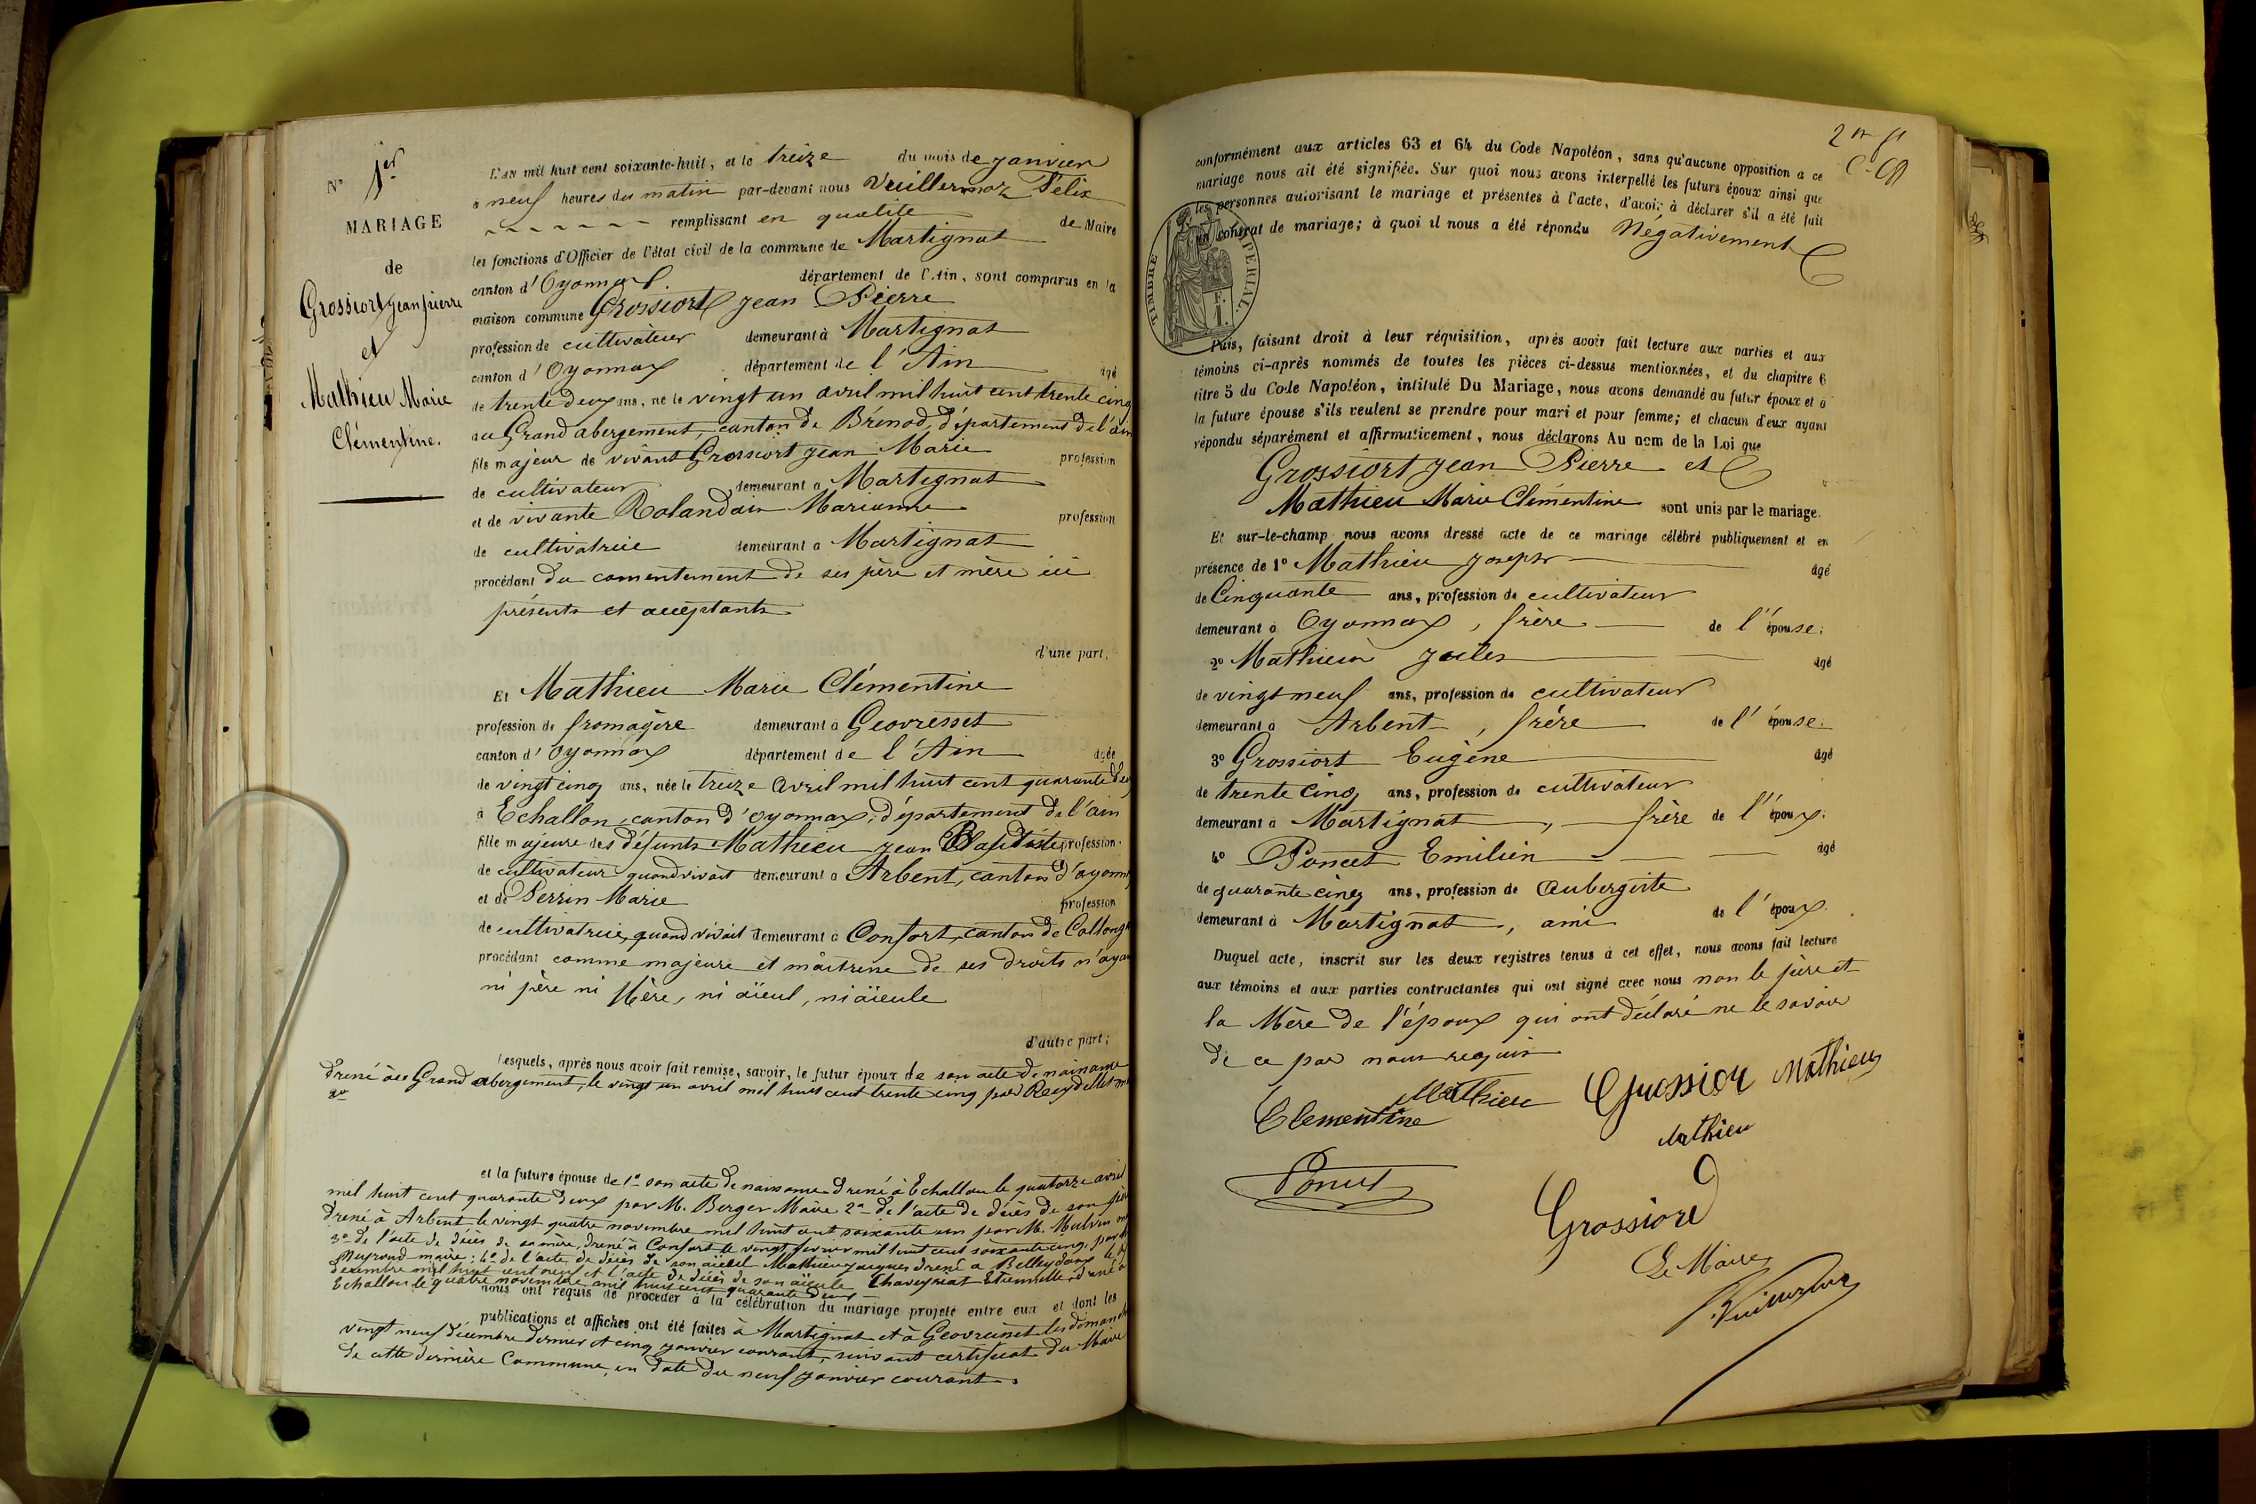 N° 1er
MARIAGE
de
Grossiort Jean Pierre
et
Mathieu Marie
Clémentine.
L'AN mil huit cent soixante-huit, et le treize du mois de janvier
à neuf heures du matin par-devant nous Vuillermoz Félix
remplissant en qualité de Maire
les fonctions d'Officier de l'état civil de la commune de Martignat
canton d'Oyonnax département de l'Ain, sont comparus en la
maison commune Grossiort Jean Pierre
profession de cultivateur demeurant à Martignat
canton d'Oyonnax département de l'Ain âgé
de trente deux ans, né le vingt un avril mil huit cent trente cinq
au Grand abergement, canton de Brénod, département de l'ain
fils majeur de vivant Grossiort Jean Marie profession
de cultivateur demeurant à Martignat
et de vivante Rolandain Marianne profession
de cultivatrice demeurant à Martignat
procédant du consentement de ses père et mère ici
présents et acceptants
d'une part,
Et Mathieu Marie Clémentine
profession de fromagère demeurant à Geovresset
canton d'Oyonnax département de l'Ain âgée
de vingt cinq ans, née le treize avril mil huit cent quarante deux
à Echallon, canton d'oyonnax, département de l'ain
fille majeure des défunts Mathieu Jean Baptiste profession
de cultivateur quand vivait demeurant à Arbent, canton d'oyonnax
et de Perrin Marie profession
de cultivatrice, quand vivait demeurant à Confort, canton de Collonges
procédant comme majeure et maîtresse de ses droits n'ayant
ni père ni Mère, ni aïeul, ni aïeule
d'autre part;
Lesquels, après nous avoir fait remise, savoir, le futur époux de son acte de naissance
dressé au Grand abergement, le vingt un avril mil huit cent trente cinq par Reydellet
et la future épouse de 1° son acte de naissance dressé à Echallon le quatorze avril
mil huit cent quarante deux par M. Berger Maire 2° de l'acte de décès de son père
dressé à Arbent le vingt quatre novembre mil huit cent soixante un par M.
3° de l'acte de décès de sa mère, dressé à Confort le vingt février mil huit cent soixante cinq, par
maire: 4° de l'acte de décès de son aïeul Mathieu Jacques dressé à Belleydoux le
décembre mil huit cent neuf et l'acte de décès de son aïeule Chaveyriat Etiennette, dressé à
Echallon le quatre novembre mil huit cent quarante deux
nous ont requis de procéder à la célébration du mariage projeté entre eux et dont les
publications et affiches ont été faites à Martignat et à Geovresset les dimanches
vingt neuf décembre dernier et cinq janvier courant, suivant certificat du Maire
de cette dernière Commune, en date du neuf janvier courant.
conformément aux articles 63 et 64 du Code Napoléon, sans qu'aucune opposition à ce
mariage nous ait été signifiée. Sur quoi nous avons interpellé les futurs époux ainsi que
les personnes autorisant le mariage et présentes à l'acte, d'avoir à déclarer s'il a été fait
un contrat de mariage; à quoi il nous a été répondu Négativement
TIMBRE IMPERIAL.
1 F.
Puis, faisant droit à leur réquisition, après avoir fait lecture aux parties et aux
témoins ci-après nommés de toutes les pièces ci-dessus mentionnées, et du chapitre 6
titre 5 du Code Napoléon, intitulé Du Mariage, nous avons demandé au futur époux et à
la future épouse s'ils veulent se prendre pour mari et pour femme; et chacun d'eux ayant
répondu séparément et affirmativement, nous déclarons Au nom de la Loi que
Grossiort Jean Pierre et
Mathieu Marie Clémentine sont unis par le mariage.
Et sur-le-champ nous avons dressé acte de ce mariage célébré publiquement et en
présence de 1° Mathieu Joseph âgé
de Cinquante ans, profession de cultivateur
demeurant à Oyonnax, frère de l'épouse;
2° Mathieu Jules âgé
de vingt neuf ans, profession de cultivateur
demeurant à Arbent, frère de l'épouse;
3° Grossiort Eugène âgé
de trente cinq ans, profession de cultivateur
demeurant à Martignat, frère de l'époux;
4° Poncet Emilien âgé
de quarante cinq ans, profession de Aubergiste
demeurant à Martignat, ami de l'époux.
Duquel acte, inscrit sur les deux registres tenus à cet effet, nous avons fait lecture
aux témoins et aux parties contractantes qui ont signé avec nous non le père et
la Mère de l'époux qui ont déclaré ne le savoir
de ce par nous requis
Mathieu Grossior Mathieu
Clementine
Mathieu
Poncet
Grossiord
Le Maire
Vuillermoz